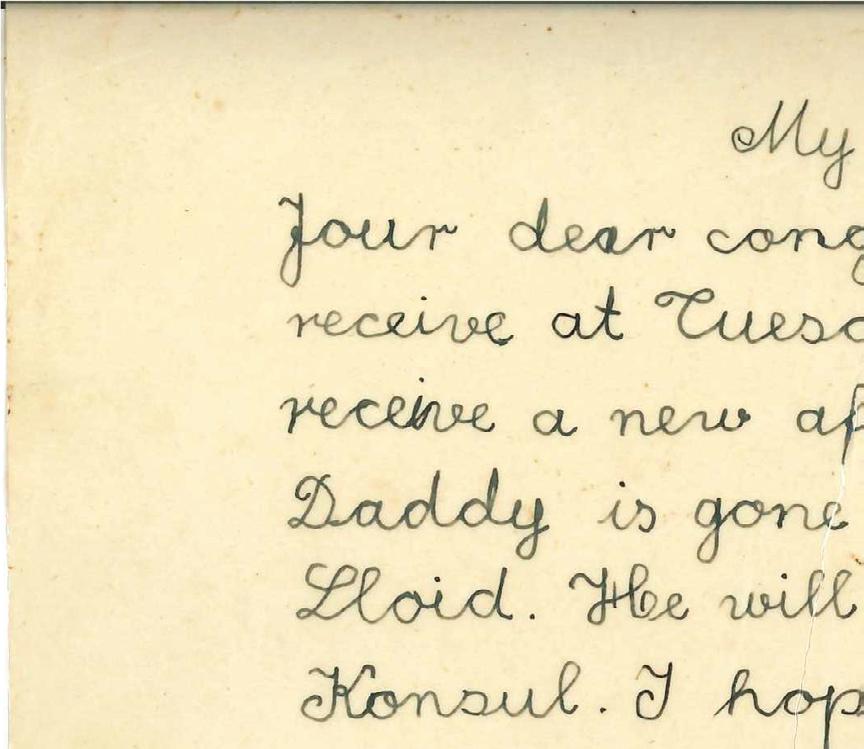 My
Jour dear cong
receive at Tuesd
receive a new af
Daddy is gone
Lloid. He will
Konsul. I hop